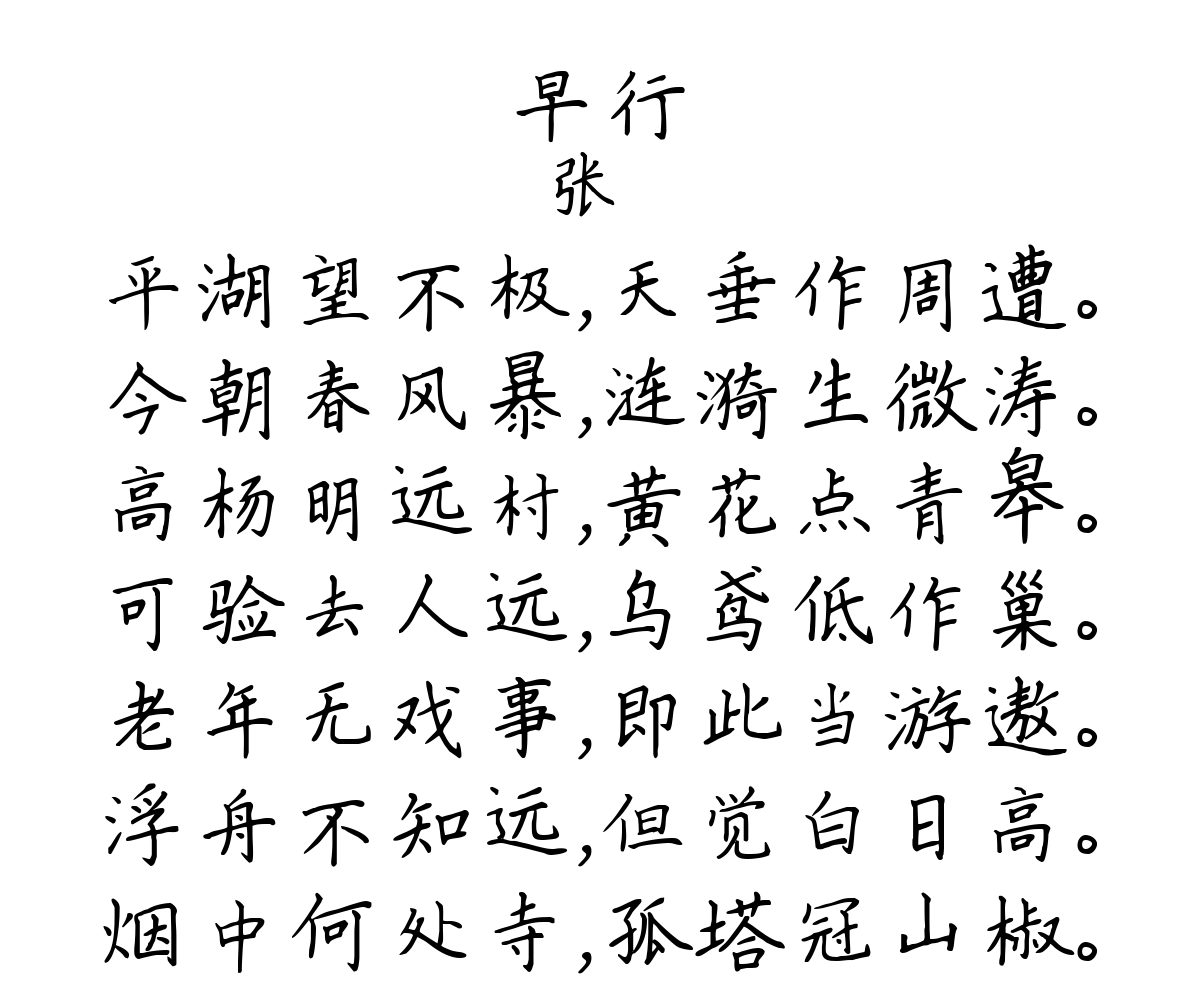 早行
张
平湖望不极,天垂作周遭。
今朝春风暴,涟漪生微涛。
高杨明远村,黄花点青皋。
可验去人远,乌鸢低作巢。
老年无戏事,即此当游遨。
浮舟不知远,但觉白日高。
烟中何处寺,孤塔冠山椒。